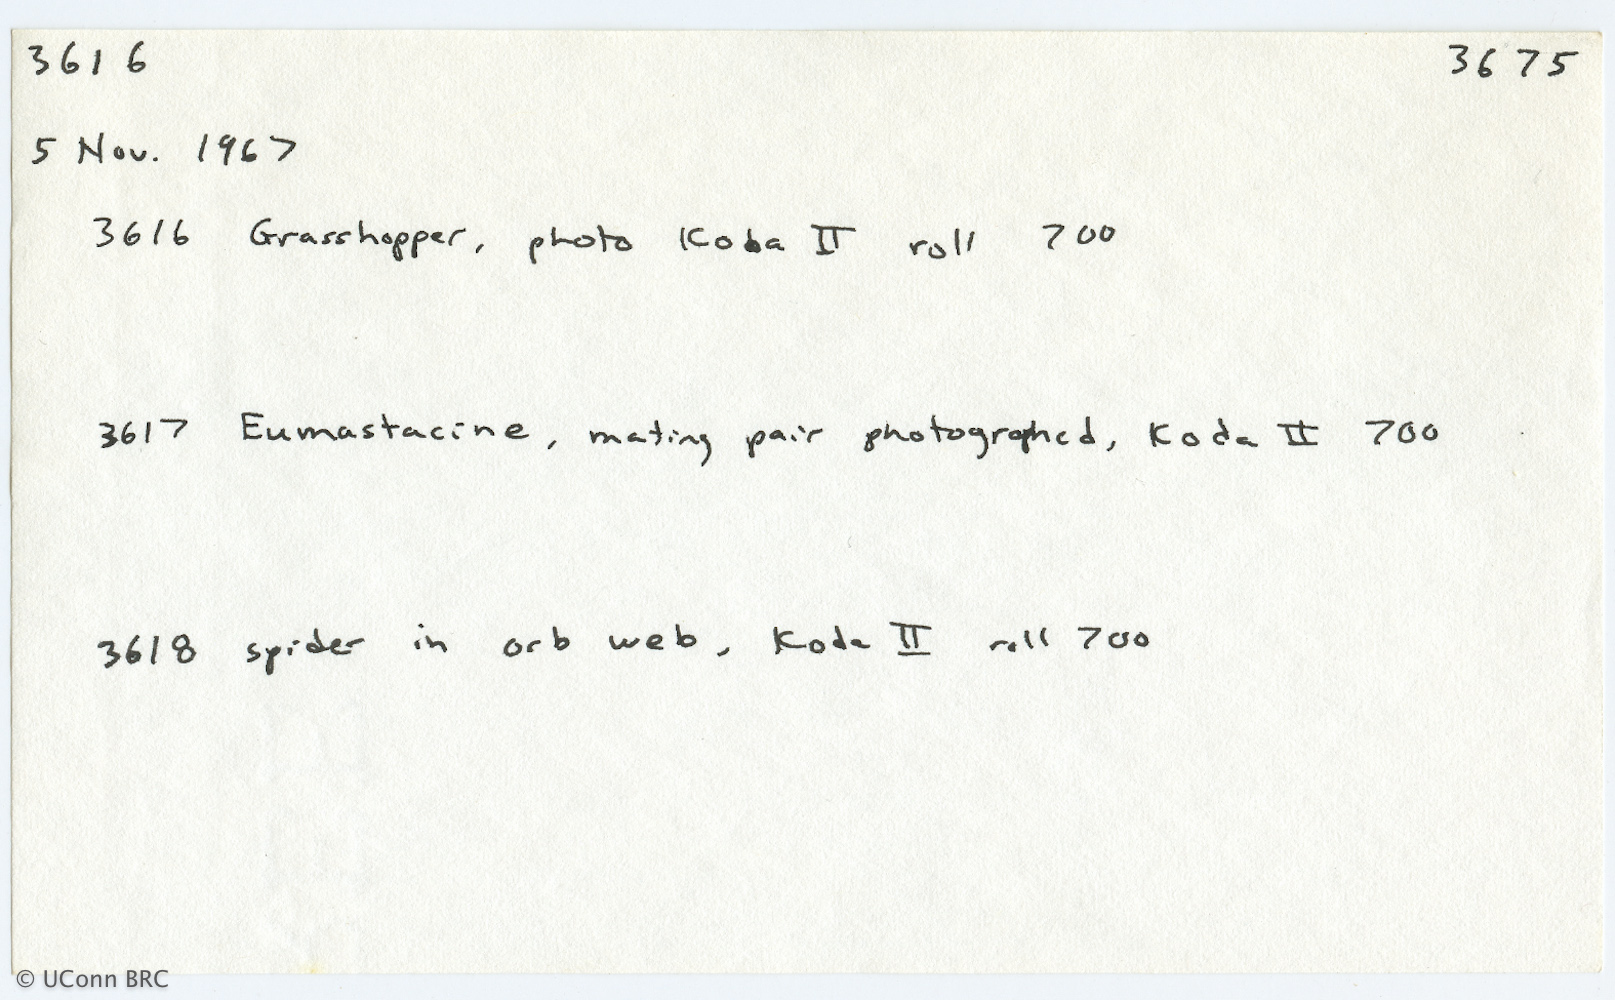 3616 3675
5 Nov. 1967
3616 Grasshopper, photo Koda II roll 700
3617 Eumastacine, mating pair photographed, Koda II 700
3618 spider in orb web, Koda II roll 700
© UConn BRC